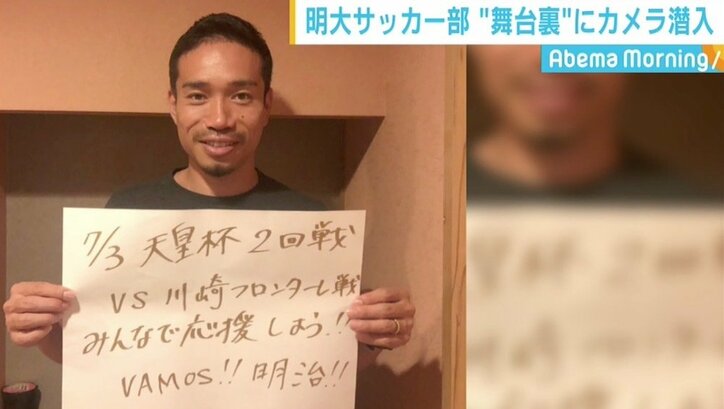 明大サッカー部 "舞台裏"にカメラ潜入
Abema Morning/
7/3 天皇杯 2回戦
VS 川崎フロンターレ戦
みんなで応援しよう!!
VAMOS!! 明治!!